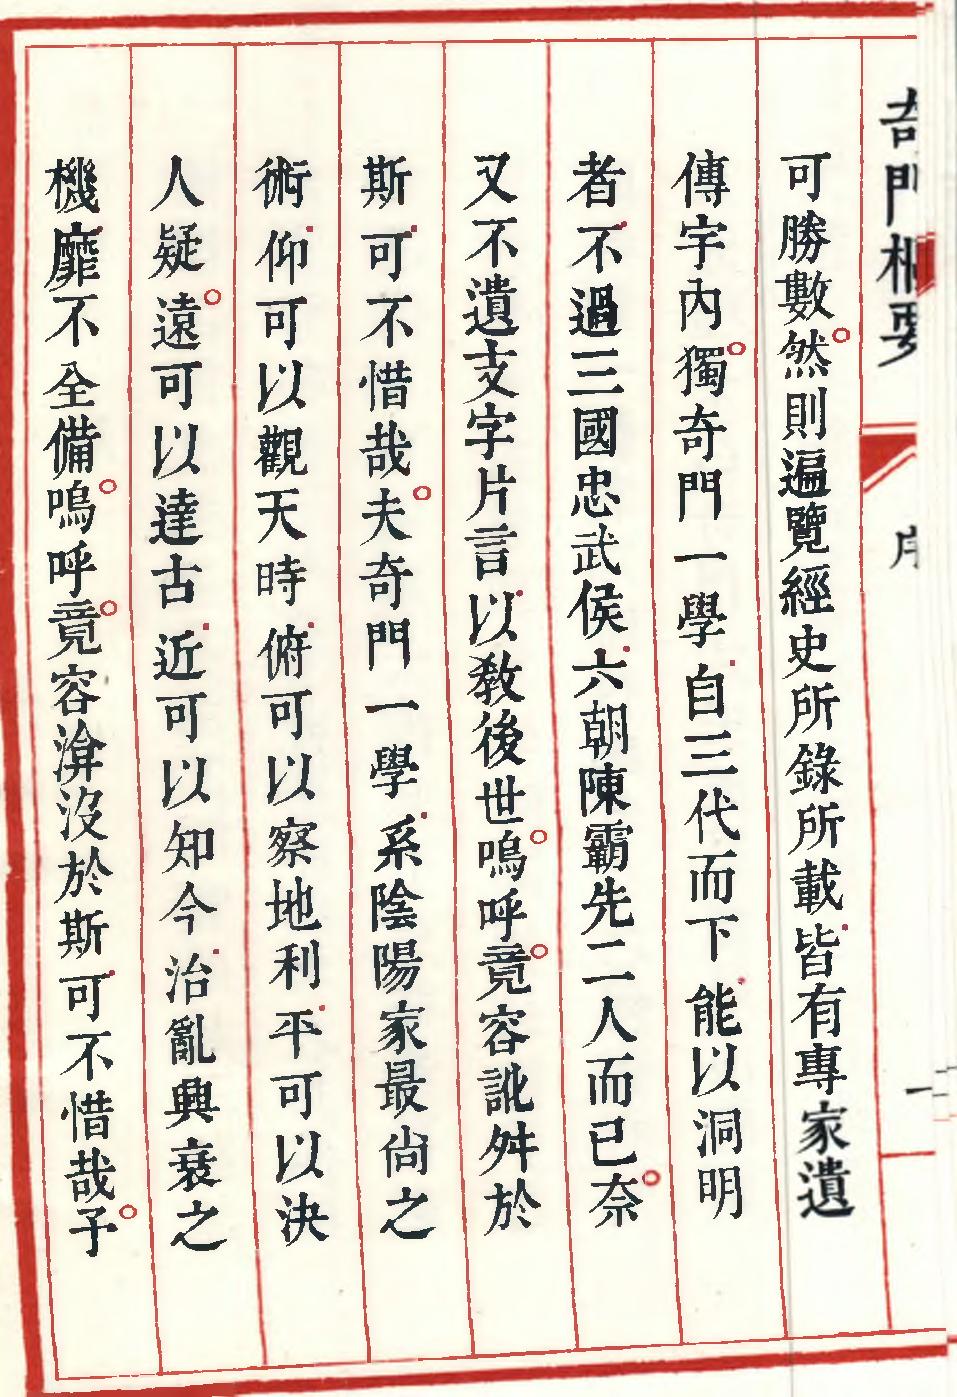 奇門樞要
序
一
可勝數。然則遍覽經史所錄所載皆有專家遺
傳字內。獨奇門一學自三代而下能以洞明
者不過三國忠武侯六朝陳霸先二人而已。奈
又不遺支字片言以教後世。嗚呼。竟容訛舛於
斯可不惜哉。夫奇門一學系陰陽家最尙之
術仰可以觀天時俯可以察地利平可以決
人疑。遠可以達古近可以知今治亂興衰之
機靡不全備。嗚呼。竟容渰沒於斯可不惜哉。予